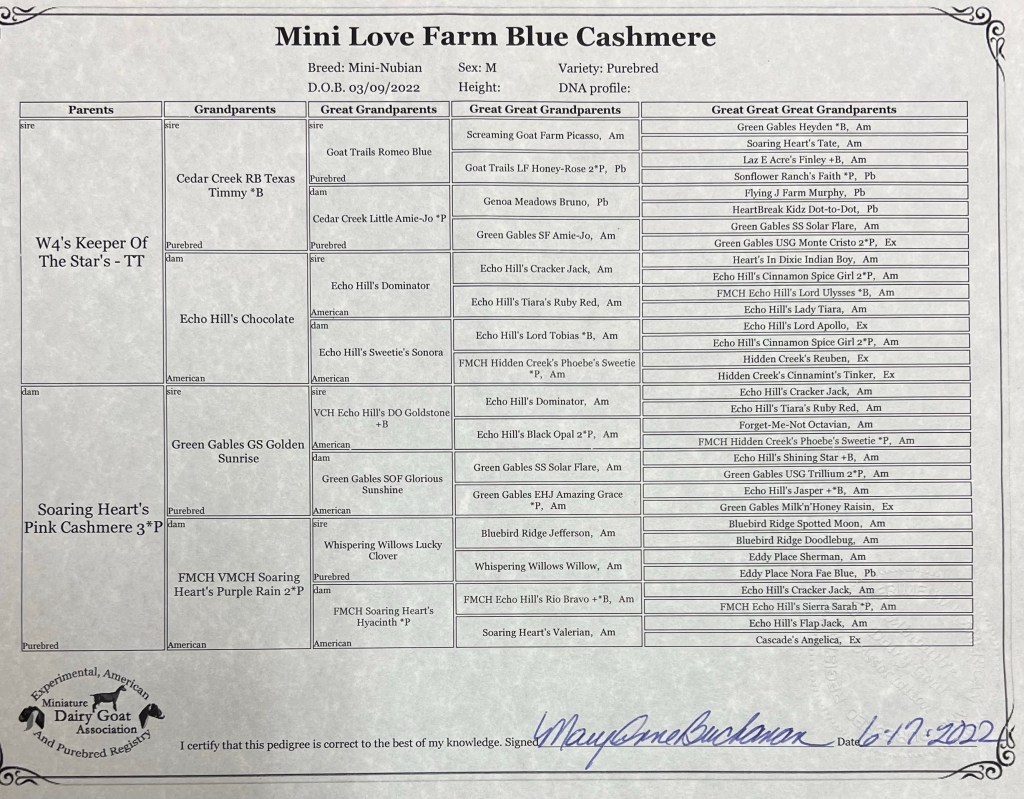 Mini Love Farm Blue Cashmere
Breed: Mini-Nubian Sex: M Variety: Purebred
D.O.B. 03/09/2022 Height: DNA profile:
Parents Grandparents Great Grandparents Great Great Grandparents Great Great Great Grandparents
sire
W4's Keeper Of
The Star's - TT
dam
Soaring Heart's
Pink Cashmere 3*P
Purebred
sire
Cedar Creek RB Texas
Timmy *B
Purebred
dam
Echo Hill's Chocolate
American
sire
Green Gables GS Golden
Sunrise
Purebred
dam
FMCH VMCH Soaring
Heart's Purple Rain 2*P
American
sire
Goat Trails Romeo Blue
Purebred
dam
Cedar Creek Little Amie-Jo *P
Purebred
sire
Echo Hill's Dominator
American
dam
Echo Hill's Sweetie's Sonora
American
sire
VCH Echo Hill's DO Goldstone
+B
American
dam
Green Gables SOF Glorious
Sunshine
American
sire
Whispering Willows Lucky
Clover
Purebred
dam
FMCH Soaring Heart's
Hyacinth *P
American
Screaming Goat Farm Picasso, Am
Goat Trails LF Honey-Rose 2*P, Pb
Genoa Meadows Bruno, Pb
Green Gables SF Amie-Jo, Am
Echo Hill's Cracker Jack, Am
Echo Hill's Tiara's Ruby Red, Am
Echo Hill's Lord Tobias *B, Am
FMCH Hidden Creek's Phoebe's Sweetie
*P, Am
Echo Hill's Dominator, Am
Echo Hill's Black Opal 2*P, Am
Green Gables SS Solar Flare, Am
Green Gables EHJ Amazing Grace
*P, Am
Bluebird Ridge Jefferson, Am
Whispering Willows Willow, Am
FMCH Echo Hill's Rio Bravo +*B, Am
Soaring Heart's Valerian, Am
Green Gables Heyden *B, Am
Soaring Heart's Tate, Am
Laz E Acre's Finley +B, Am
Sonflower Ranch's Faith *P, Pb
Flying J Farm Murphy, Pb
HeartBreak Kidz Dot-to-Dot, Pb
Green Gables SS Solar Flare, Am
Green Gables USG Monte Cristo 2*P, Ex
Heart's In Dixie Indian Boy, Am
Echo Hill's Cinnamon Spice Girl 2*P, Am
FMCH Echo Hill's Lord Ulysses *B, Am
Echo Hill's Lady Tiara, Am
Echo Hill's Lord Apollo, Ex
Echo Hill's Cinnamon Spice Girl 2*P, Am
Hidden Creek's Reuben, Ex
Hidden Creek's Cinnamint's Tinker, Ex
Echo Hill's Cracker Jack, Am
Echo Hill's Tiara's Ruby Red, Am
Forget-Me-Not Octavian, Am
FMCH Hidden Creek's Phoebe's Sweetie *P, Am
Echo Hill's Shining Star +B, Am
Green Gables USG Trillium 2*P, Am
Echo Hill's Jasper +*B, Am
Green Gables Milk'n'Honey Raisin, Ex
Bluebird Ridge Spotted Moon, Am
Bluebird Ridge Doodlebug, Am
Eddy Place Sherman, Am
Eddy Place Nora Fae Blue, Pb
Echo Hill's Cracker Jack, Am
FMCH Echo Hill's Sierra Sarah *P, Am
Echo Hill's Flap Jack, Am
Cascade's Angelica, Ex
Experimental, American
Miniature
Dairy Goat
Association
And Purebred Registry
I certify that this pedigree is correct to the best of my knowledge. Signed Mary Anne Buchanan Date 6-17-2022